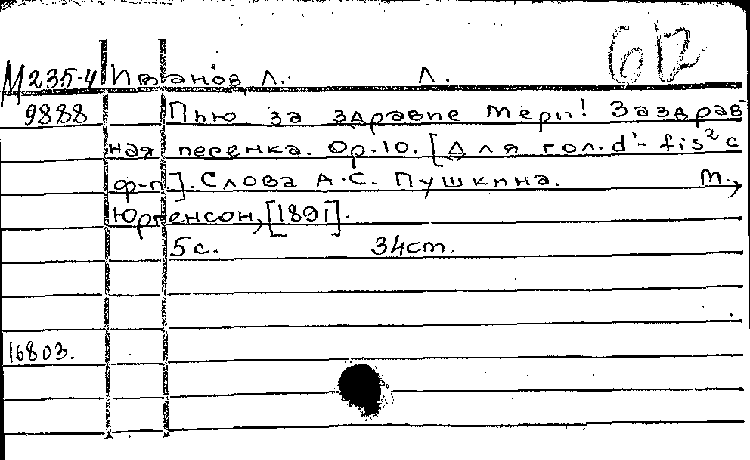 612
М235-4 Иванов, Л. Л.
9888 Пью за здравие Мери! Заздрав-
ная песенка. Ор.10. [Для гол. d¹- fis² с
ф-п.]. Слова А.С. Пушкина. М.,
Юргенсон, [1891].
5с. 34см.
16803.